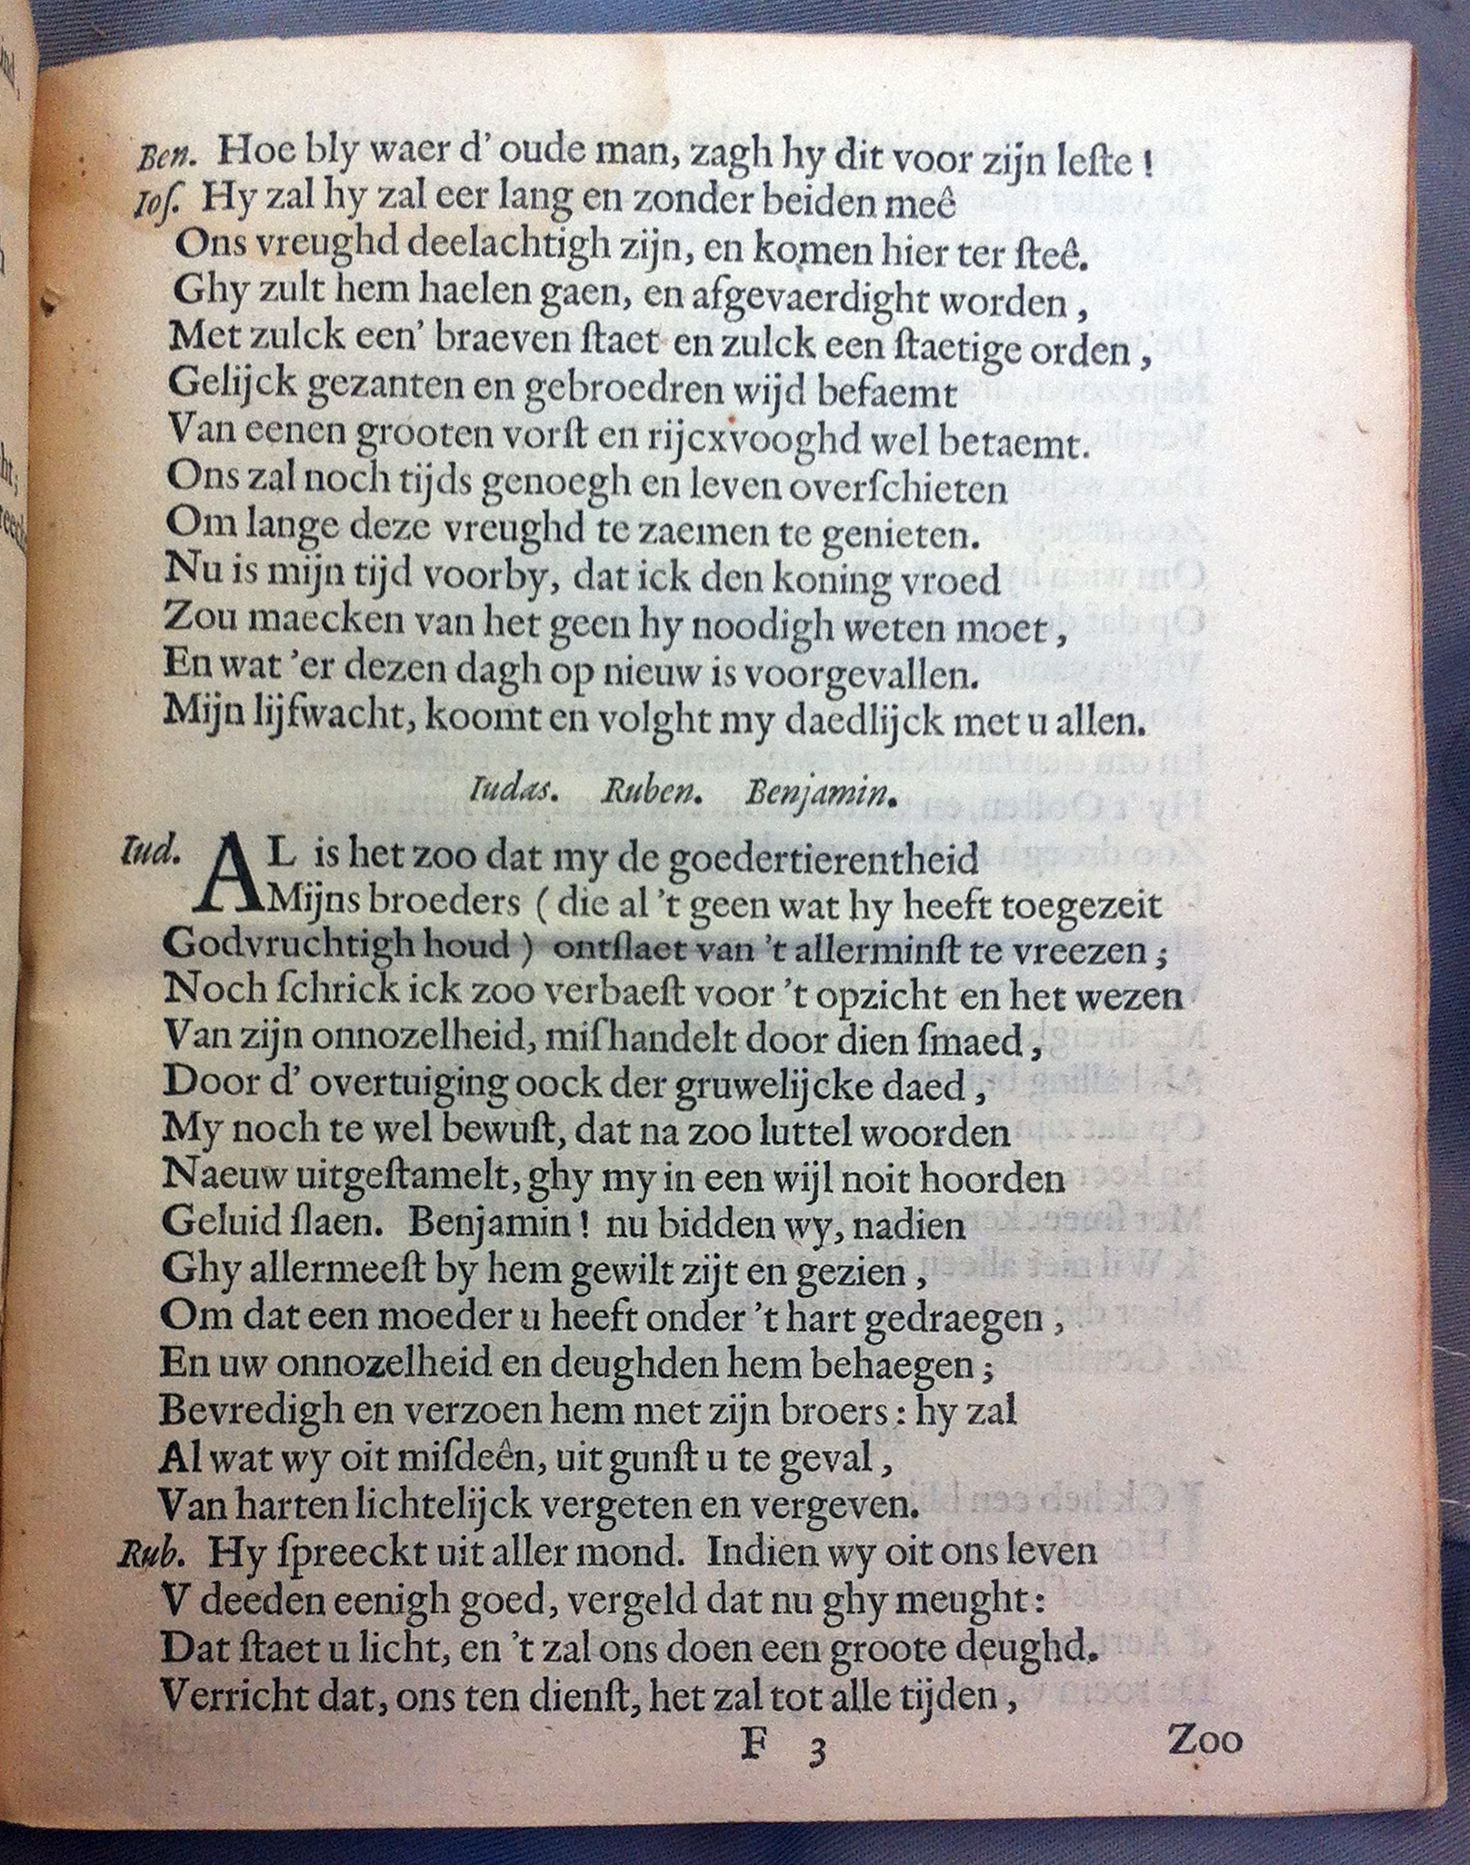 Ben. Hoe bly waer d' oude man, zagh hy dit voor zijn leſte !
Ioſ. Hy zal hy zal eer lang en zonder beiden meê
Ons vreughd deelachtigh zijn, en komen hier ter ſteê.
Ghy zult hem haelen gaen, en afgevaerdight worden ,
Met zulck een' braeven ſtaet en zulck een ſtaetige orden ,
Gelijck gezanten en gebroedren wijd befaemt
Van eenen grooten vorſt en rijcxvooghd wel betaemt.
Ons zal noch tijds genoegh en leven overſchieten
Om lange deze vreughd te zaemen te genieten.
Nu is mijn tijd voorby, dat ick den koning vroed
Zou maecken van het geen hy noodigh weten moet ,
En wat 'er dezen dagh op nieuw is voorgevallen.
Mijn lijfwacht, koomt en volght my daedlijck met u allen.
Iudas. Ruben. Benjamin.
Iud. AL is het zoo dat my de goedertierentheid
Mijns broeders ( die al 't geen wat hy heeft toegezeit
Godvruchtigh houd ) ontſlaet van 't allerminſt te vreezen ;
Noch ſchrick ick zoo verbaeſt voor 't opzicht en het wezen
Van zijn onnozelheid, miſhandelt door dien ſmaed ,
Door d' overtuiging oock der gruwelijcke daed ,
My noch te wel bewuſt, dat na zoo luttel woorden
Naeuw uitgeſtamelt, ghy my in een wijl noit hoorden
Geluid ſlaen. Benjamin ! nu bidden wy, nadien
Ghy allermeeſt by hem gewilt zijt en gezien ,
Om dat een moeder u heeft onder 't hart gedraegen ,
En uw onnozelheid en deughden hem behaegen ;
Bevredigh en verzoen hem met zijn broers : hy zal
Al wat wy oit miſdeên, uit gunſt u te geval ,
Van harten lichtelijck vergeten en vergeven.
Rub. Hy ſpreeckt uit aller mond. Indien wy oit ons leven
V deeden eenigh goed, vergeld dat nu ghy meught :
Dat ſtaet u licht, en 't zal ons doen een groote deughd.
Verricht dat, ons ten dienſt, het zal tot alle tijden ,
F 3 Zoo